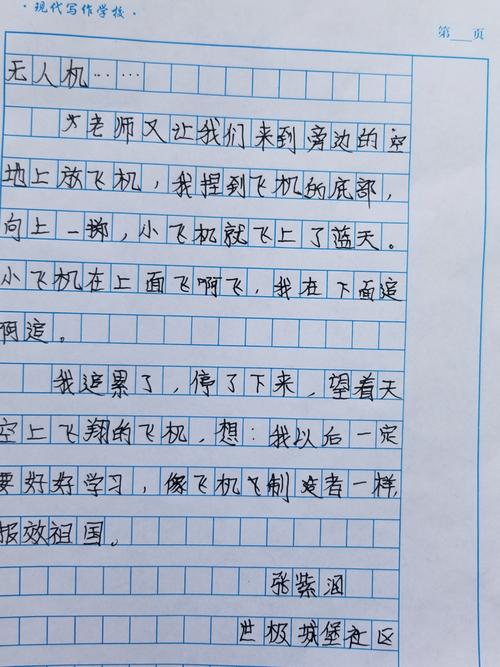 ·现代写作学校·
第 页
无人机……
老师又让我们来到旁边的空
地上放飞机，我捏到飞机的底部，
向上一掷，小飞机就飞上了蓝天。
小飞机在上面飞啊飞，我在下面追
啊追。
我追累了，停了下来，望着天
空上飞翔的飞机，想：我以后一定
要好好学习，像飞机飞制造者一样，
报效祖国。
张紫润
世极城堡社区